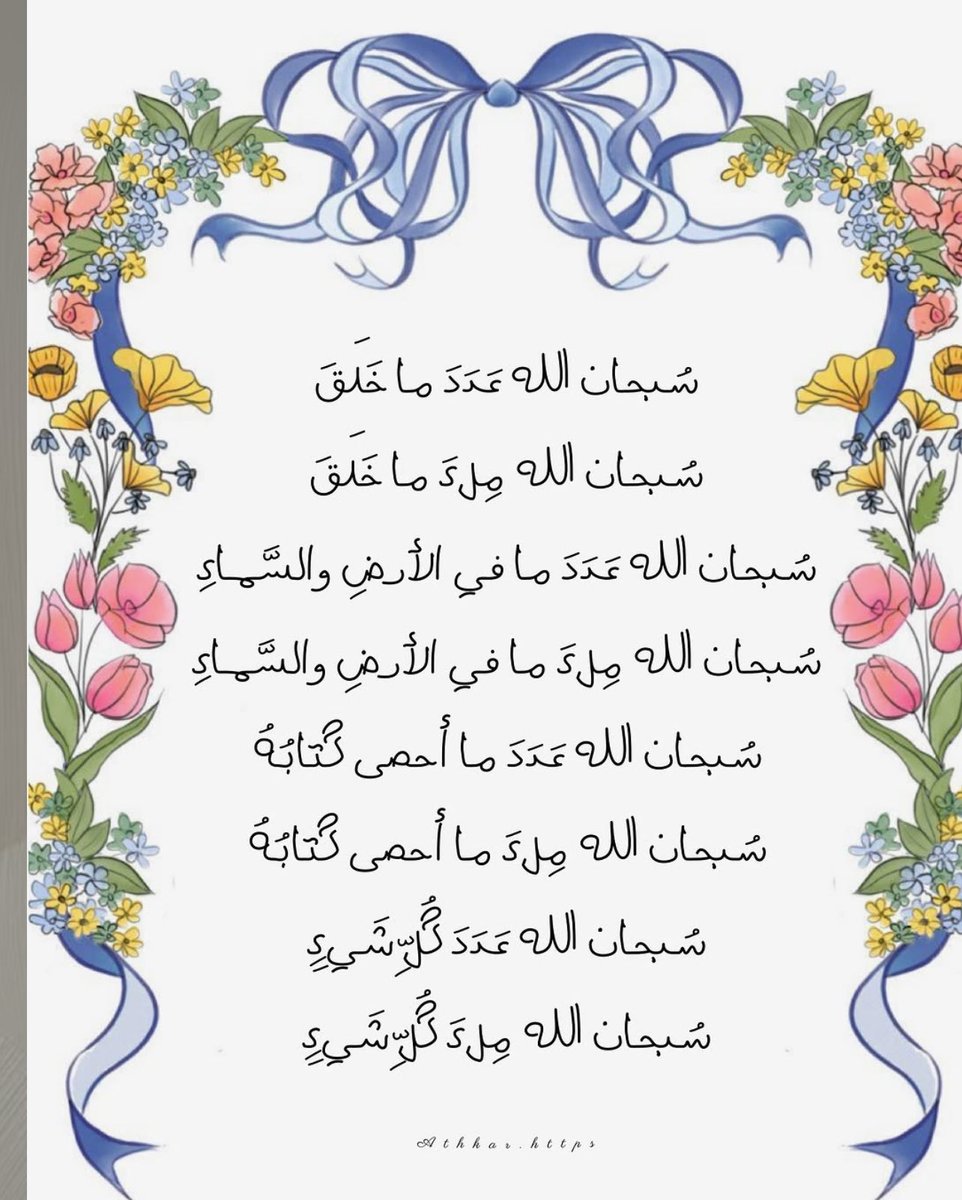 سُبحان الله عَدَدَ ما خَلَقَ
سُبحان الله مِلءَ ما خَلَقَ
سُبحان الله عَدَدَ ما في الأرضِ والسَّماءِ
سُبحان الله مِلءَ ما في الأرضِ والسَّماءِ
سُبحان الله عَدَدَ ما أحصى كُتابُهُ
سُبحان الله مِلءَ ما أحصى كُتابُهُ
سُبحان الله عَدَدَ كُلِّ شَيءٍ
سُبحان الله مِلءَ كُلِّ شَيءٍ
Athkar.https